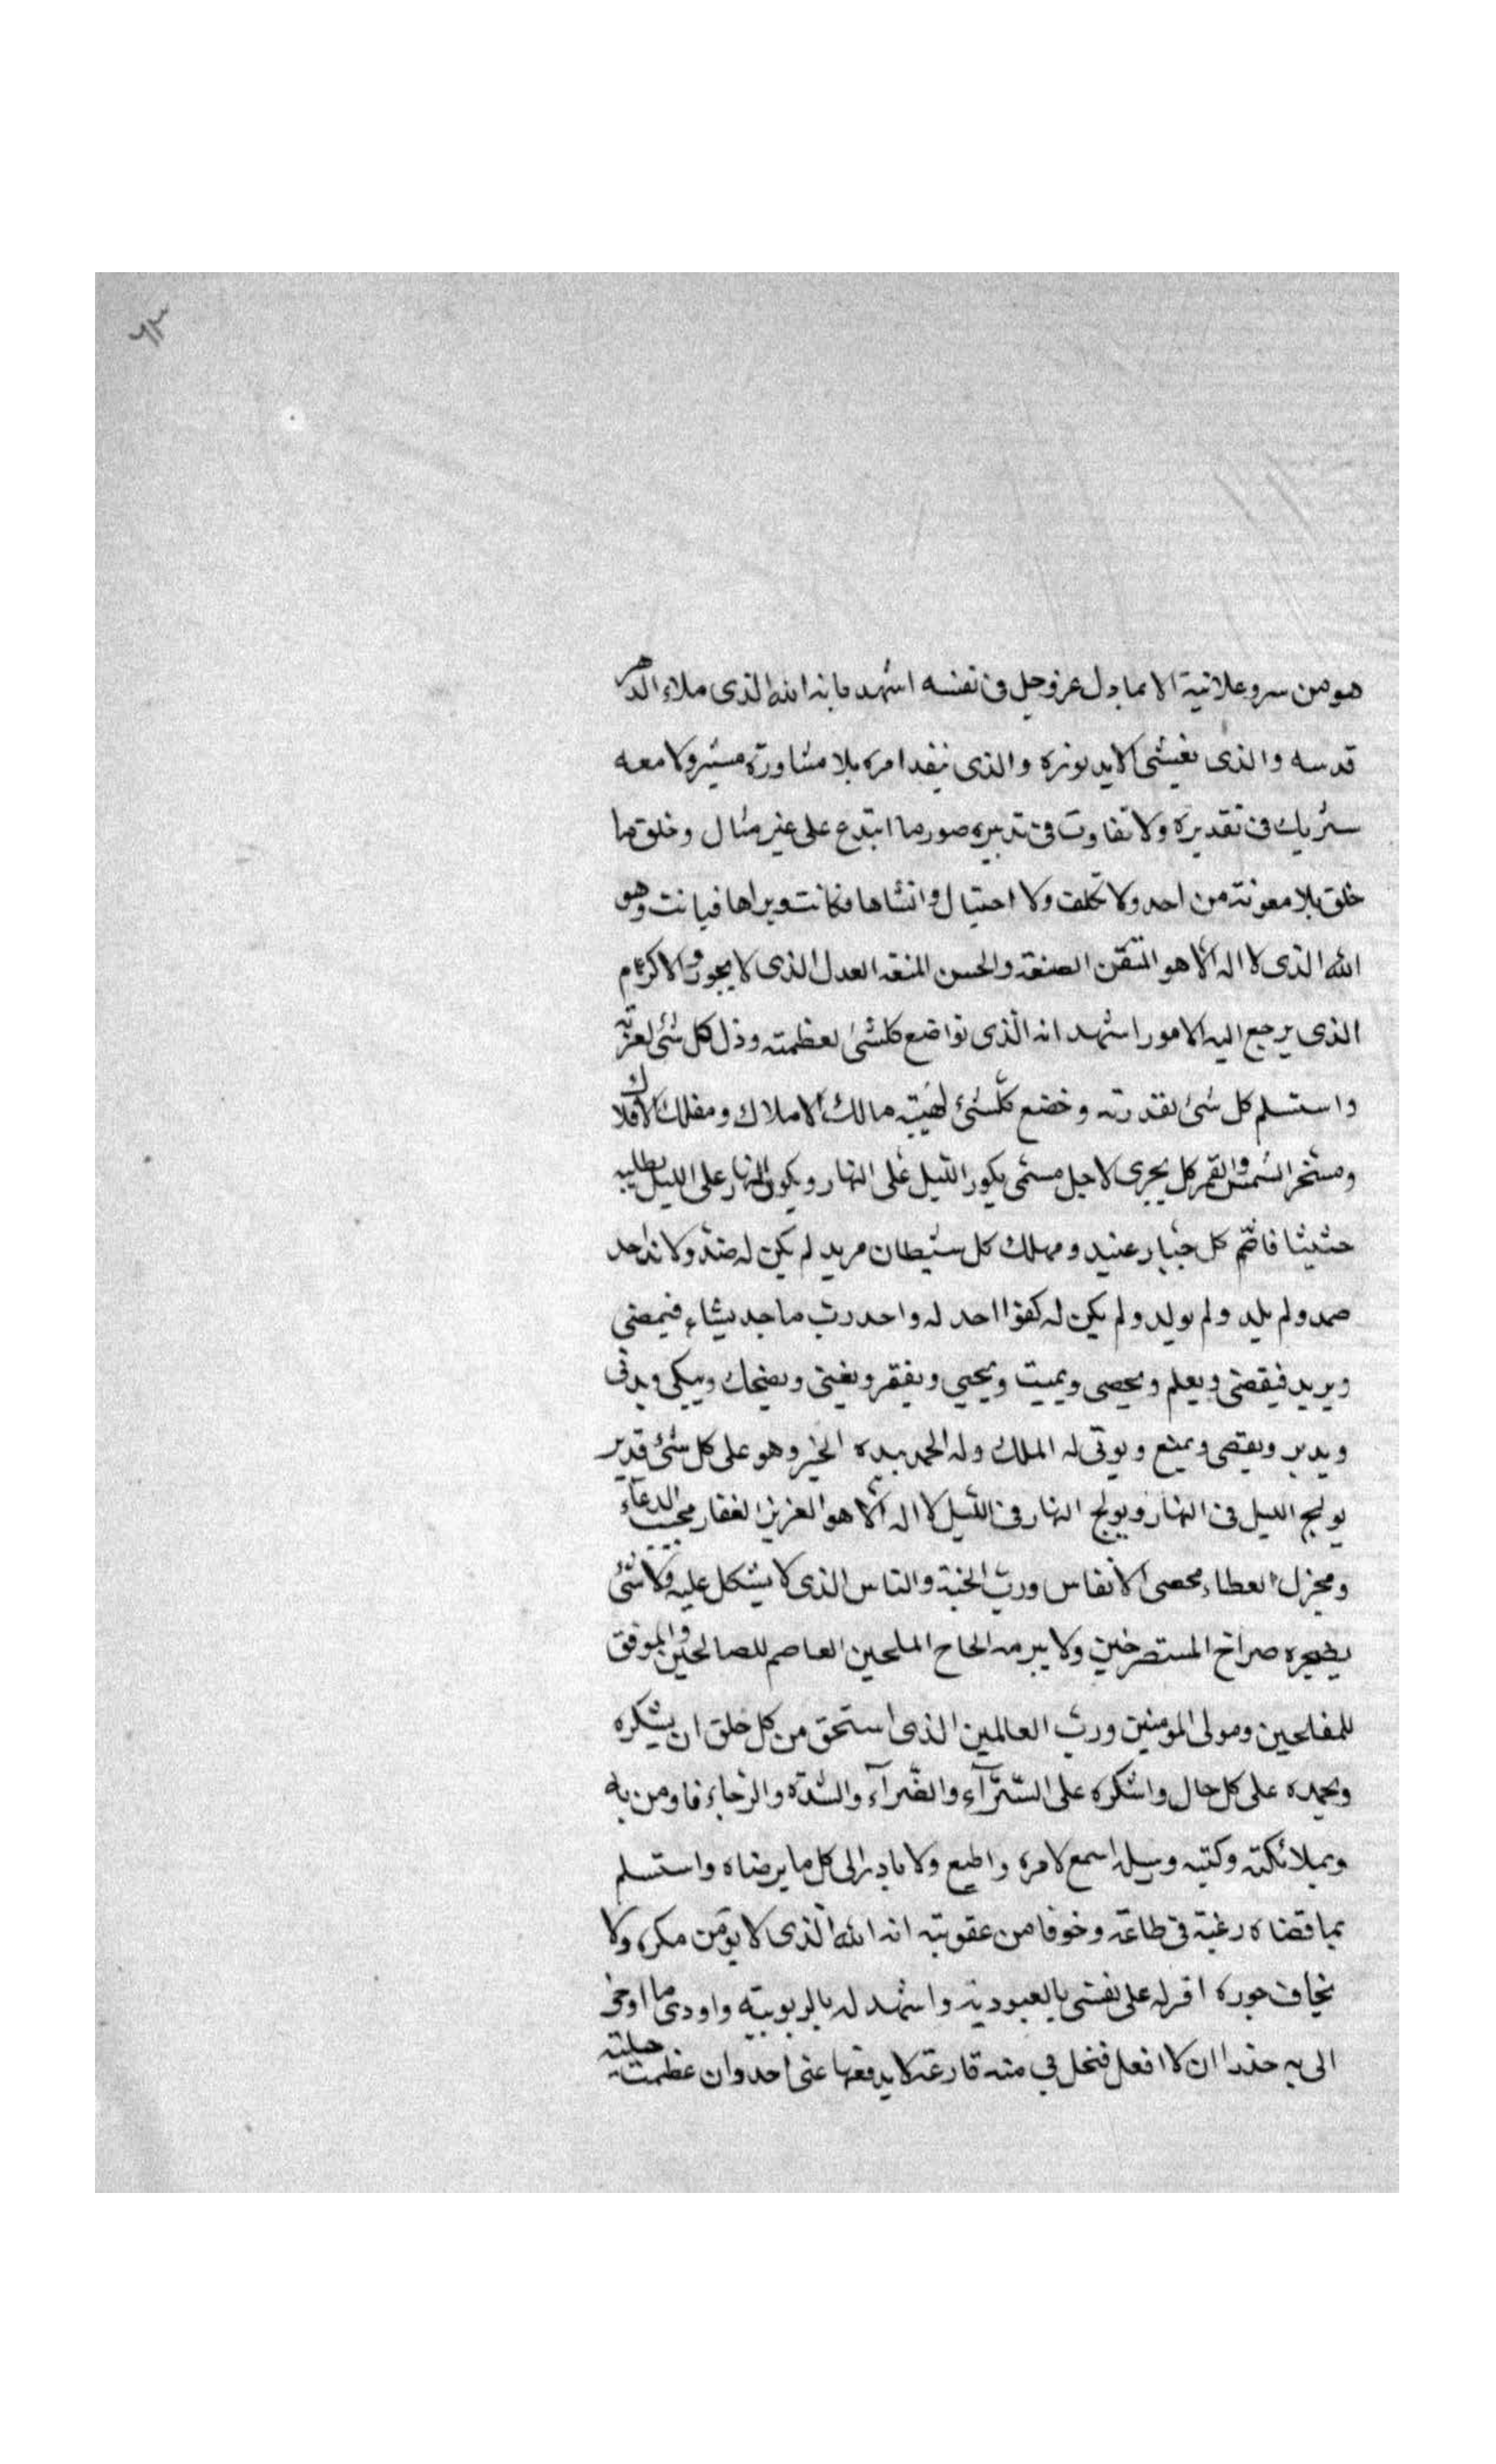 ٦٣
هو من سر وعلانية الا بما دل عز وجل فى نفسه اشهد بانه الله الذى ملاء الدهر
قدسه والذى يغشى الابد نوره والذى ينفد امره بلا مشاورة مشير ولا معه
شريك فى تقديره ولا تفاوت فى تدبيره صور ما ابتدع على غير مثال وخلق ما
خلق بلا معونة من احد ولا تكلف ولا احتيال وانشاها فكانت وبراها فبانت وهو
الله الذى لا اله الا هو المتقن الصنعة والحسن المنعة العدل الذى لا يجور والاكرم
الذى يرجع اليه الامور اشهد انه الذى تواضع كلشئ لعظمته وذل كل شئ لعزته
واستسلم كل شئ لقدرته وخضع كلشئ لهيبته مالك الاملاك ومفلك الافلاك
ومسخر الشمس والقمر كل يجرى لاجل مسمى يكور الليل على النهار ويكور النهار على الليل يطلبه
حثيثا قاصم كل جبار عنيد ومهلك كل شيطان مريد لم يكن له ضد ولا ند احد
صمد ولم يلد ولم يولد ولم يكن له كفوا احد له واحد رب ماجد يشاء فيمضى
ويريد فيقضى ويعلم ويحصى ويميت ويحيي ويفقر ويغنى ويضحك ويبكى ويدنى
ويدبر ويقصى ويمنع ويوتى له الملك وله الحمد بيده الخير وهو على كل شئ قدير
يولج الليل فى النهار ويولج النهار فى الليل لا اله الا هو العزيز الغفار مجيب الدعاء
ومجزل العطاء محصى الانفاس ورب الجنة والناس الذى لا يشكل عليه ولا شئ
يضجره صراخ المستصرخين ولا يبرمه الحاح الملحين العاصم للصالحين والموفق
للمفلحين ومولى المومنين ورب العالمين الذى استحق من كل خلق ان يشكره
ويحمده على كل حال واشكره على السرآء والضرآء والشدة والرخاء فاومن به
وبملائكته وكتبه ورسله اسمع لامره واطيع ولا بادر الى كل ما يرضاه واستسلم
بما قضاه رغبة فى طاعته وخوفا من عقوبته انه الله الذى لا يؤمن مكره ولا
يخاف جوره اقر له على نفسى بالعبودية واشهد له بالربوبية واودى ما اوحى
الى به حذرا ان لا افعل فتحل بي منه قارعة لا يدفعها عنى احد وان عظمت حيلته